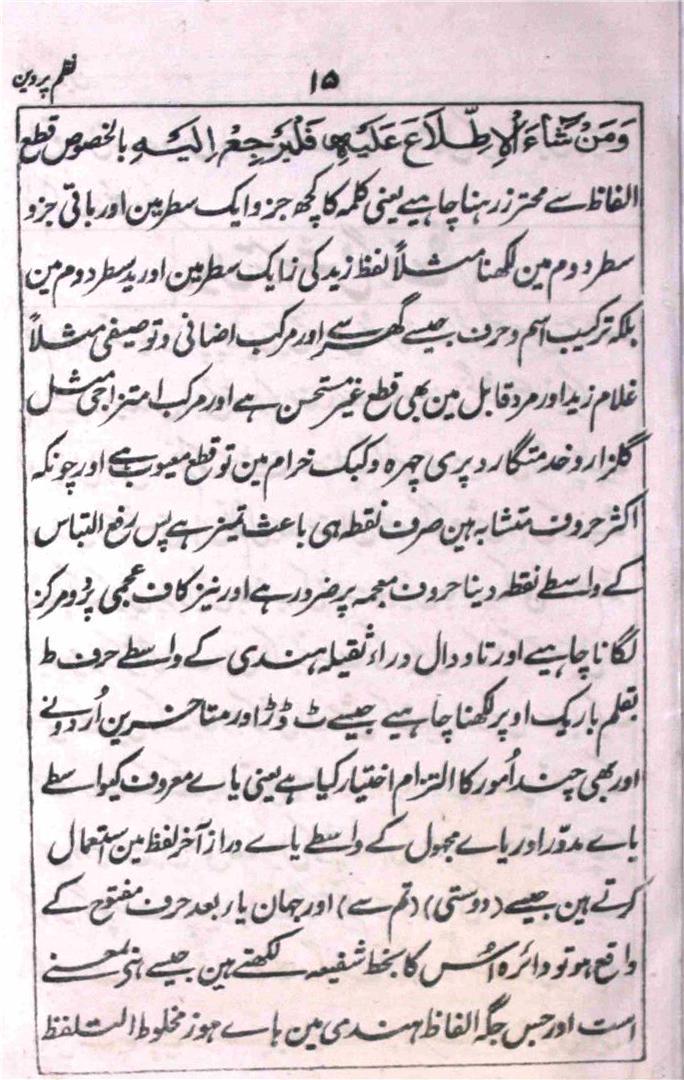 نظم پروین
۱۵
وَمَنْ شَاءَ الْاِطِّلَاعَ عَلَيْهِ فَلْيَرْجِعْ اِلَيْهِ بالخصوص قطع
الفاظ سے محترز رہنا چاہیے یعنی کلمہ کا کچھ جزو ایک سطر مین اور باقی جزو
سطر دوم مین لکھنا مثلاً لفظ زید کی ز ایک سطر مین اور ید سطر دوم مین
بلکہ ترکیب اسم و حرف جیسے گھر سے اور مرکب اضافی و توصیفی مثلاً
غلام زید اور مرد قابل مین بھی قطع غیر مستحسن ہے اور مرکب امتزاجی مثل
گلزار و خدمتگار و پری چہرہ و کبک خرام مین تو قطع معیوب ہے اور چونکہ
اکثر حروف متشابہ ہین صرف نقطہ ہی باعث تمیز ہے پس رفع التباس
کے واسطے نقطہ دینا حروف معجمہ پر ضرور ہے اور نیز کاف عجمی پر دو مرکز
لگانا چاہیے اور تا و دال و راء ثقیلہ ہندی کے واسطے حرف ط
بقلم باریک اوپر لکھنا چاہیے جیسے ٹ ڈ ڑ اور متاخرین اُردو نے
اور بھی چند اُمور کا التزام اختیار کیا ہے یعنی یاے معروف کیواسطے
یاے مدوّر اور یاے مجہول کے واسطے یاے دراز آخر لفظ مین استعمال
کرتے ہین جیسے (دوستی) (تم سے) اور جہان یاء بعد حرف مفتوح کے
واقع ہو تو دائرہ اُس کا بخط شفیعہ لکھتے ہین جیسے بمعنے
است اور جس جگہ الفاظ ہندی مین ہاے ہوز مخلوط التلفظ